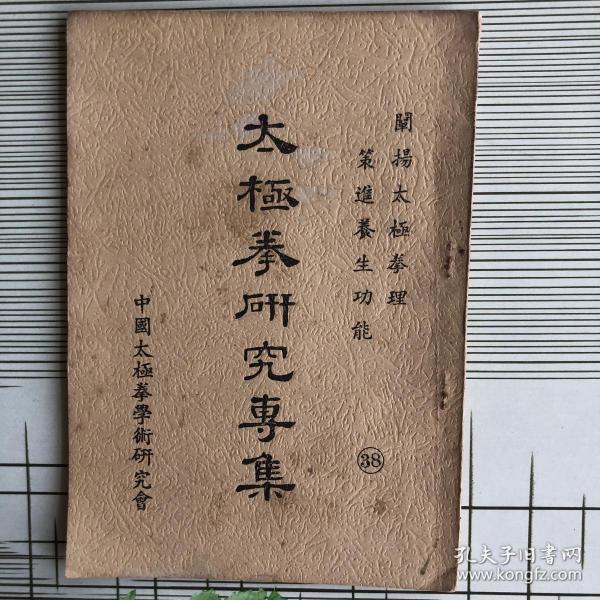 闡揚太極拳理
策進養生功能
38
太極拳研究專集
中國太極拳學術研究會
孔夫子旧书网
www.kongfz.com